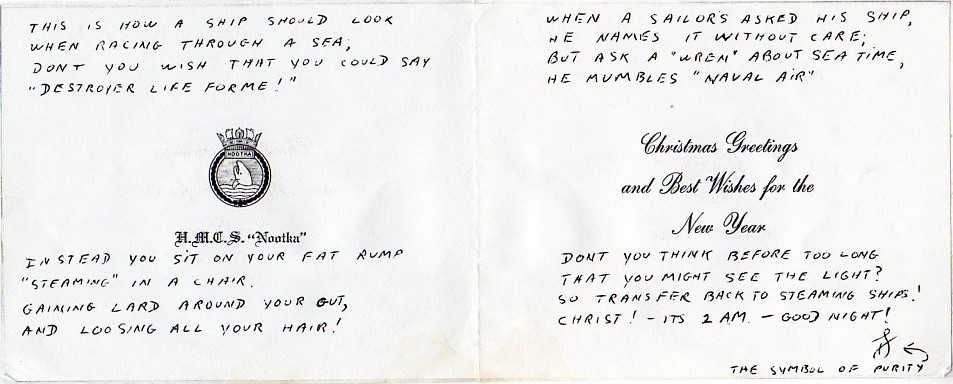 THIS IS HOW A SHIP SHOULD LOOK
WHEN RACING THROUGH A SEA;
DONT YOU WISH THAT YOU COULD SAY
"DESTROYER LIFE FORME!"
NOOTKA
H.M.C.S. "Nootka"
INSTEAD YOU SIT ON YOUR FAT RUMP
"STEAMING" IN A CHAIR.
GAINING LARD AROUND YOUR GUT,
AND LOOSING ALL YOUR HAIR!
WHEN A SAILOR'S ASKED HIS SHIP,
HE NAMES IT WITHOUT CARE;
BUT ASK A "WREN" ABOUT SEA TIME,
HE MUMBLES "NAVAL AIR"
Christmas Greetings
and Best Wishes for the
New Year
DONT YOU THINK BEFORE TOO LONG
THAT YOU MIGHT SEE THE LIGHT?
SO TRANSFER BACK TO STEAMING SHIPS!
CHRIST! - ITS 2 AM. - GOOD NIGHT!
THE SYMBOL OF PURITY